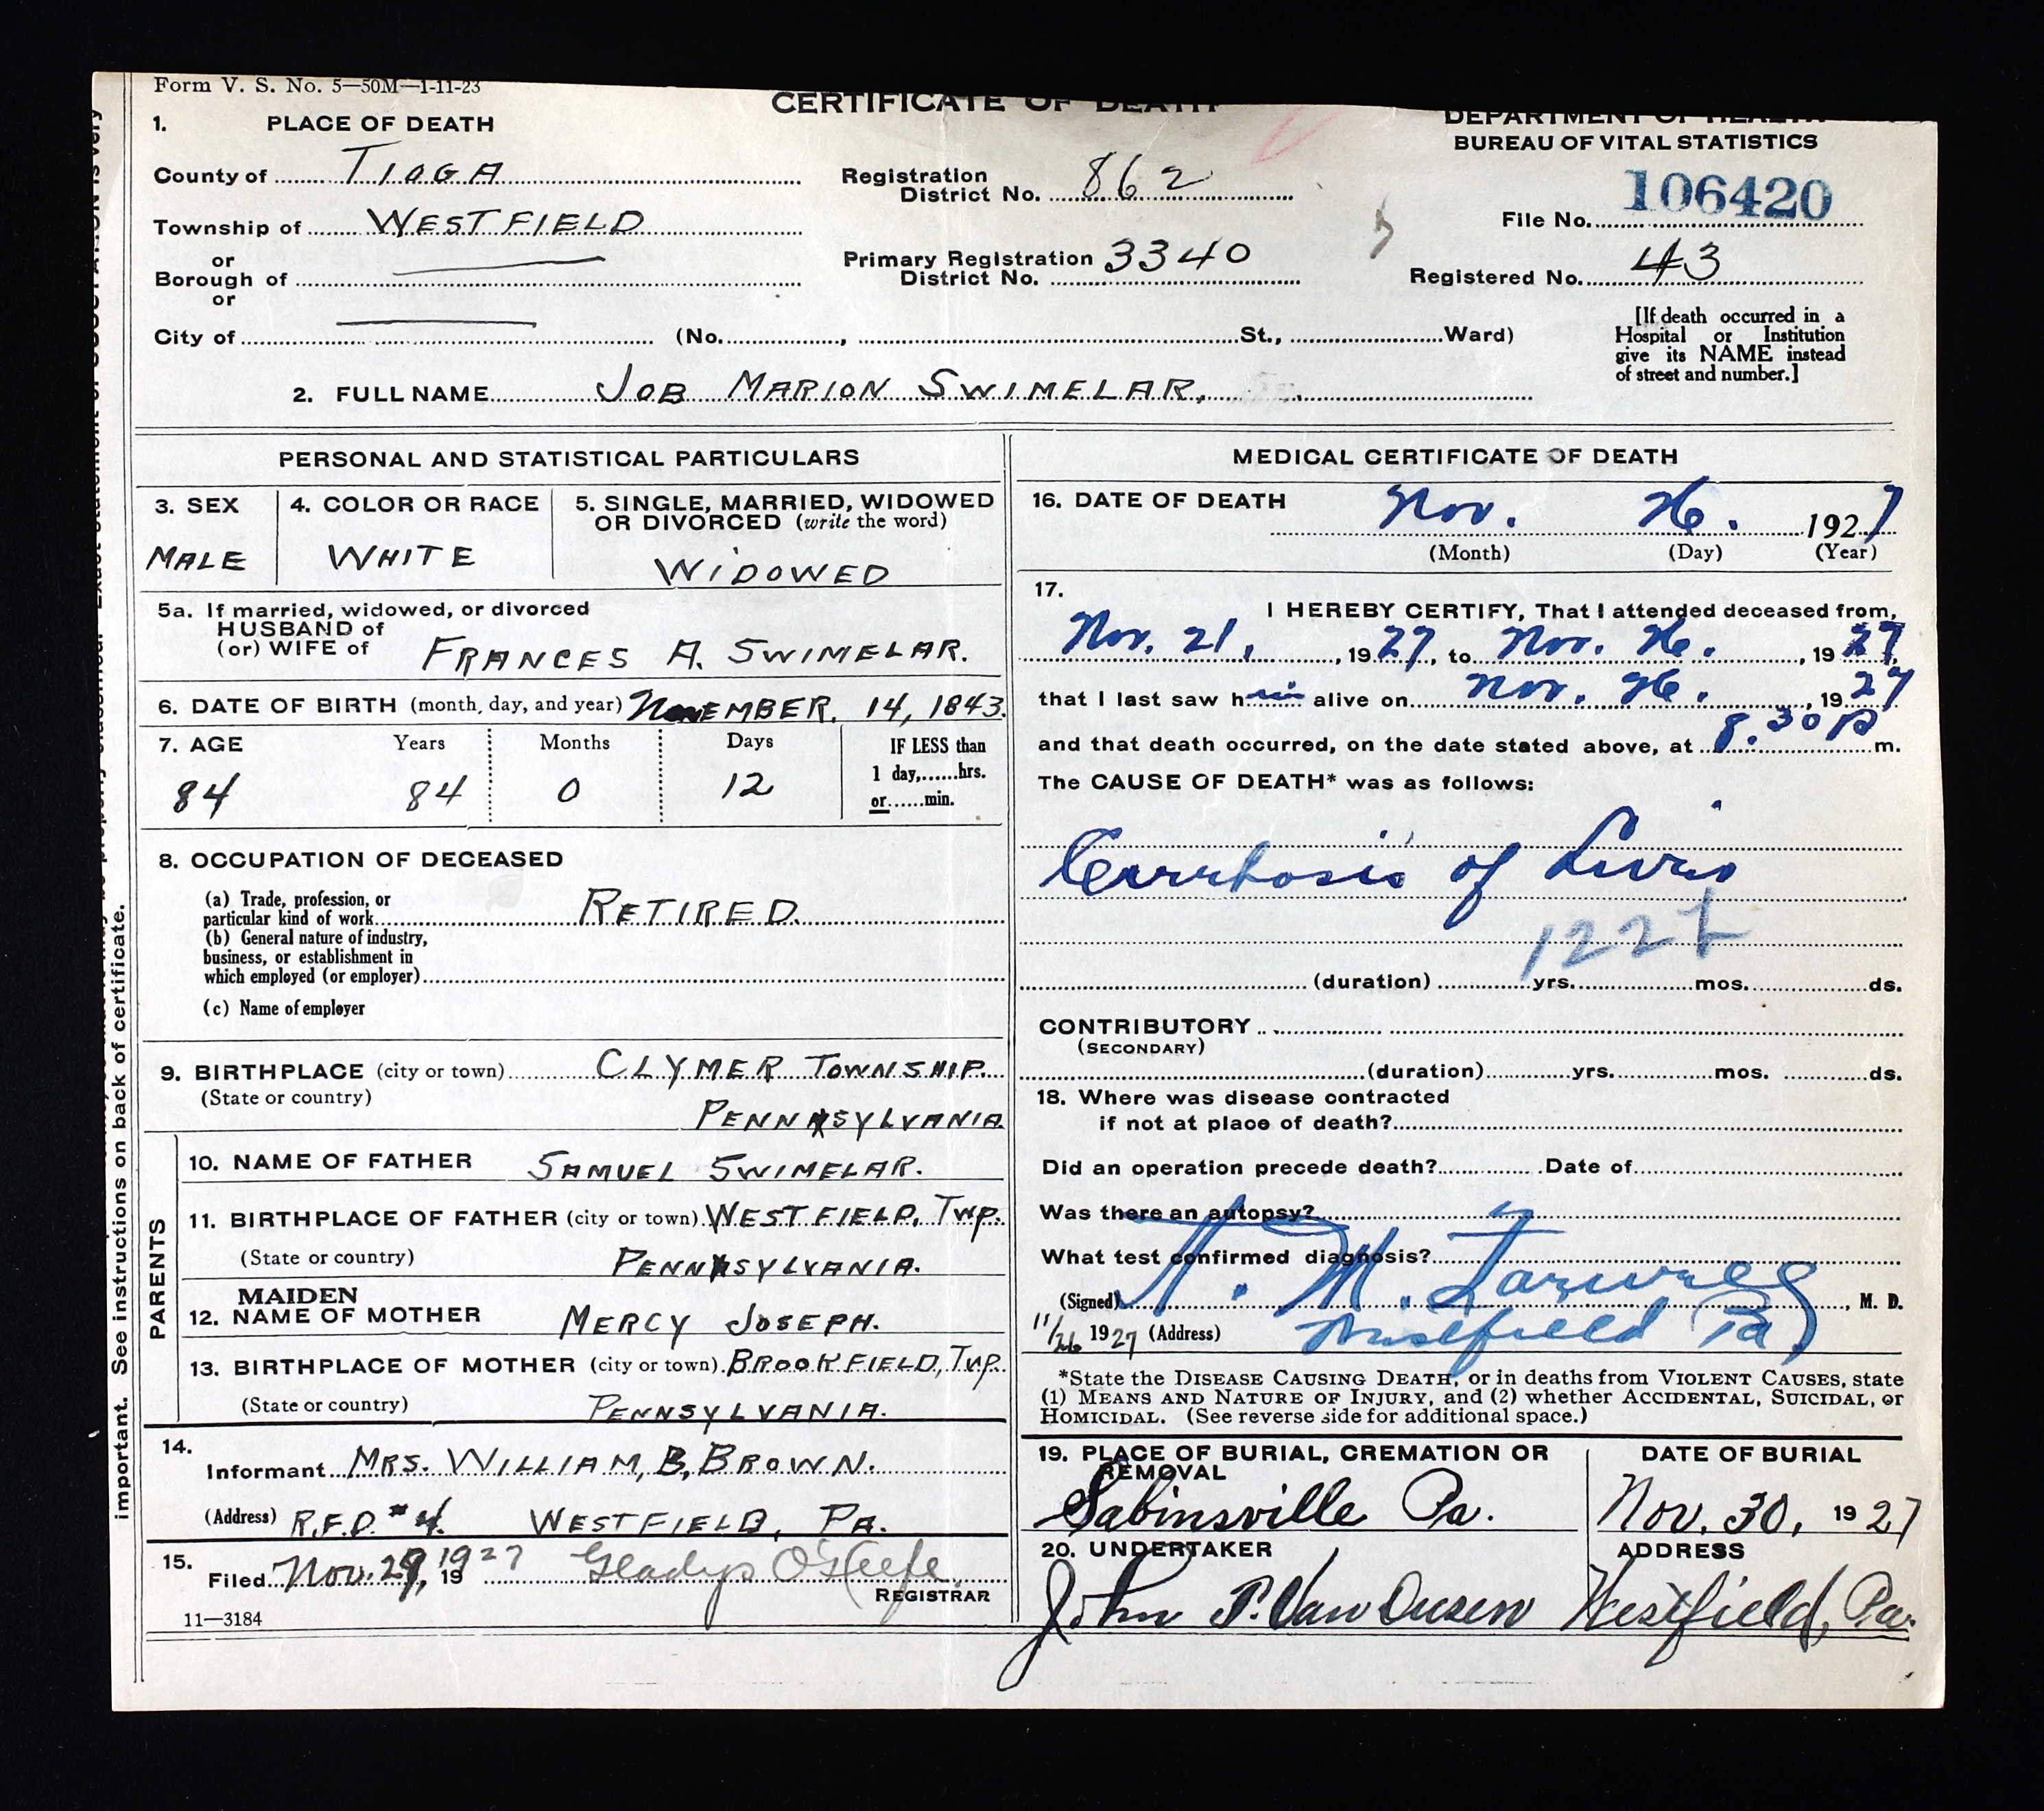 Form V. S. No. 5—50M—1-11-23
CERTIFICATE OF DEATH
DEPARTMENT OF HEALTH
BUREAU OF VITAL STATISTICS
1. PLACE OF DEATH
County of TIOGA
Registration District No. 862
File No. 106420
Township of WESTFIELD
or
Borough of
or
Primary Registration District No. 3340
Registered No. 43
City of (No. , St., Ward)
[If death occurred in a
Hospital or Institution
give its NAME instead
of street and number.]
2. FULL NAME JOB MARION SWIMELAR.
PERSONAL AND STATISTICAL PARTICULARS
3. SEX
MALE
4. COLOR OR RACE
WHITE
5. SINGLE, MARRIED, WIDOWED
OR DIVORCED (write the word)
WIDOWED
5a. If married, widowed, or divorced
HUSBAND of
(or) WIFE of FRANCES A. SWIMELAR.
6. DATE OF BIRTH (month, day, and year) NOVEMBER. 14, 1843.
7. AGE Years Months Days IF LESS than
1 day,......hrs.
or......min.
84 84 0 12
8. OCCUPATION OF DECEASED
(a) Trade, profession, or
particular kind of work RETIRED.
(b) General nature of industry,
business, or establishment in
which employed (or employer)
(c) Name of employer
9. BIRTHPLACE (city or town) CLYMER TOWNSHIP.
(State or country) PENNSYLVANIA
PARENTS
10. NAME OF FATHER SAMUEL SWIMELAR.
11. BIRTHPLACE OF FATHER (city or town) WESTFIELD, TWP.
(State or country) PENNSYLVANIA.
MAIDEN
12. NAME OF MOTHER MERCY JOSEPH.
13. BIRTHPLACE OF MOTHER (city or town) BROOKFIELD, TWP.
(State or country) PENNSYLVANIA.
14.
Informant MRS. WILLIAM, B, BROWN.
(Address) R.F.D. #4. WESTFIELD, PA.
15.
Filed Nov. 29, 1927 19 Gladys O'Keefe
REGISTRAR
11—3184
MEDICAL CERTIFICATE OF DEATH
16. DATE OF DEATH Nov. 26. 1927
(Month) (Day) (Year)
17.
I HEREBY CERTIFY, That I attended deceased from,
Nov. 21, , 1927, to Nov. 26. , 1927,
that I last saw him alive on Nov. 26. , 1927
and that death occurred, on the date stated above, at 8.30 P m.
The CAUSE OF DEATH* was as follows:
Cirrhosis of Liver
122b
(duration) yrs. mos. ds.
CONTRIBUTORY
(SECONDARY)
(duration) yrs. mos. ds.
18. Where was disease contracted
if not at place of death?
Did an operation precede death? Date of
Was there an autopsy?
What test confirmed diagnosis?
(Signed) M. , M. D.
11/26 1927 (Address) Westfield Pa
*State the DISEASE CAUSING DEATH, or in deaths from VIOLENT CAUSES, state
(1) MEANS AND NATURE OF INJURY, and (2) whether ACCIDENTAL, SUICIDAL, or
HOMICIDAL. (See reverse side for additional space.)
19. PLACE OF BURIAL, CREMATION OR
REMOVAL
Sabinsville Pa.
DATE OF BURIAL
Nov. 30, 1927
20. UNDERTAKER
John P. Van Dusen
ADDRESS
Westfield, Pa.
important. See instructions on back of certificate.